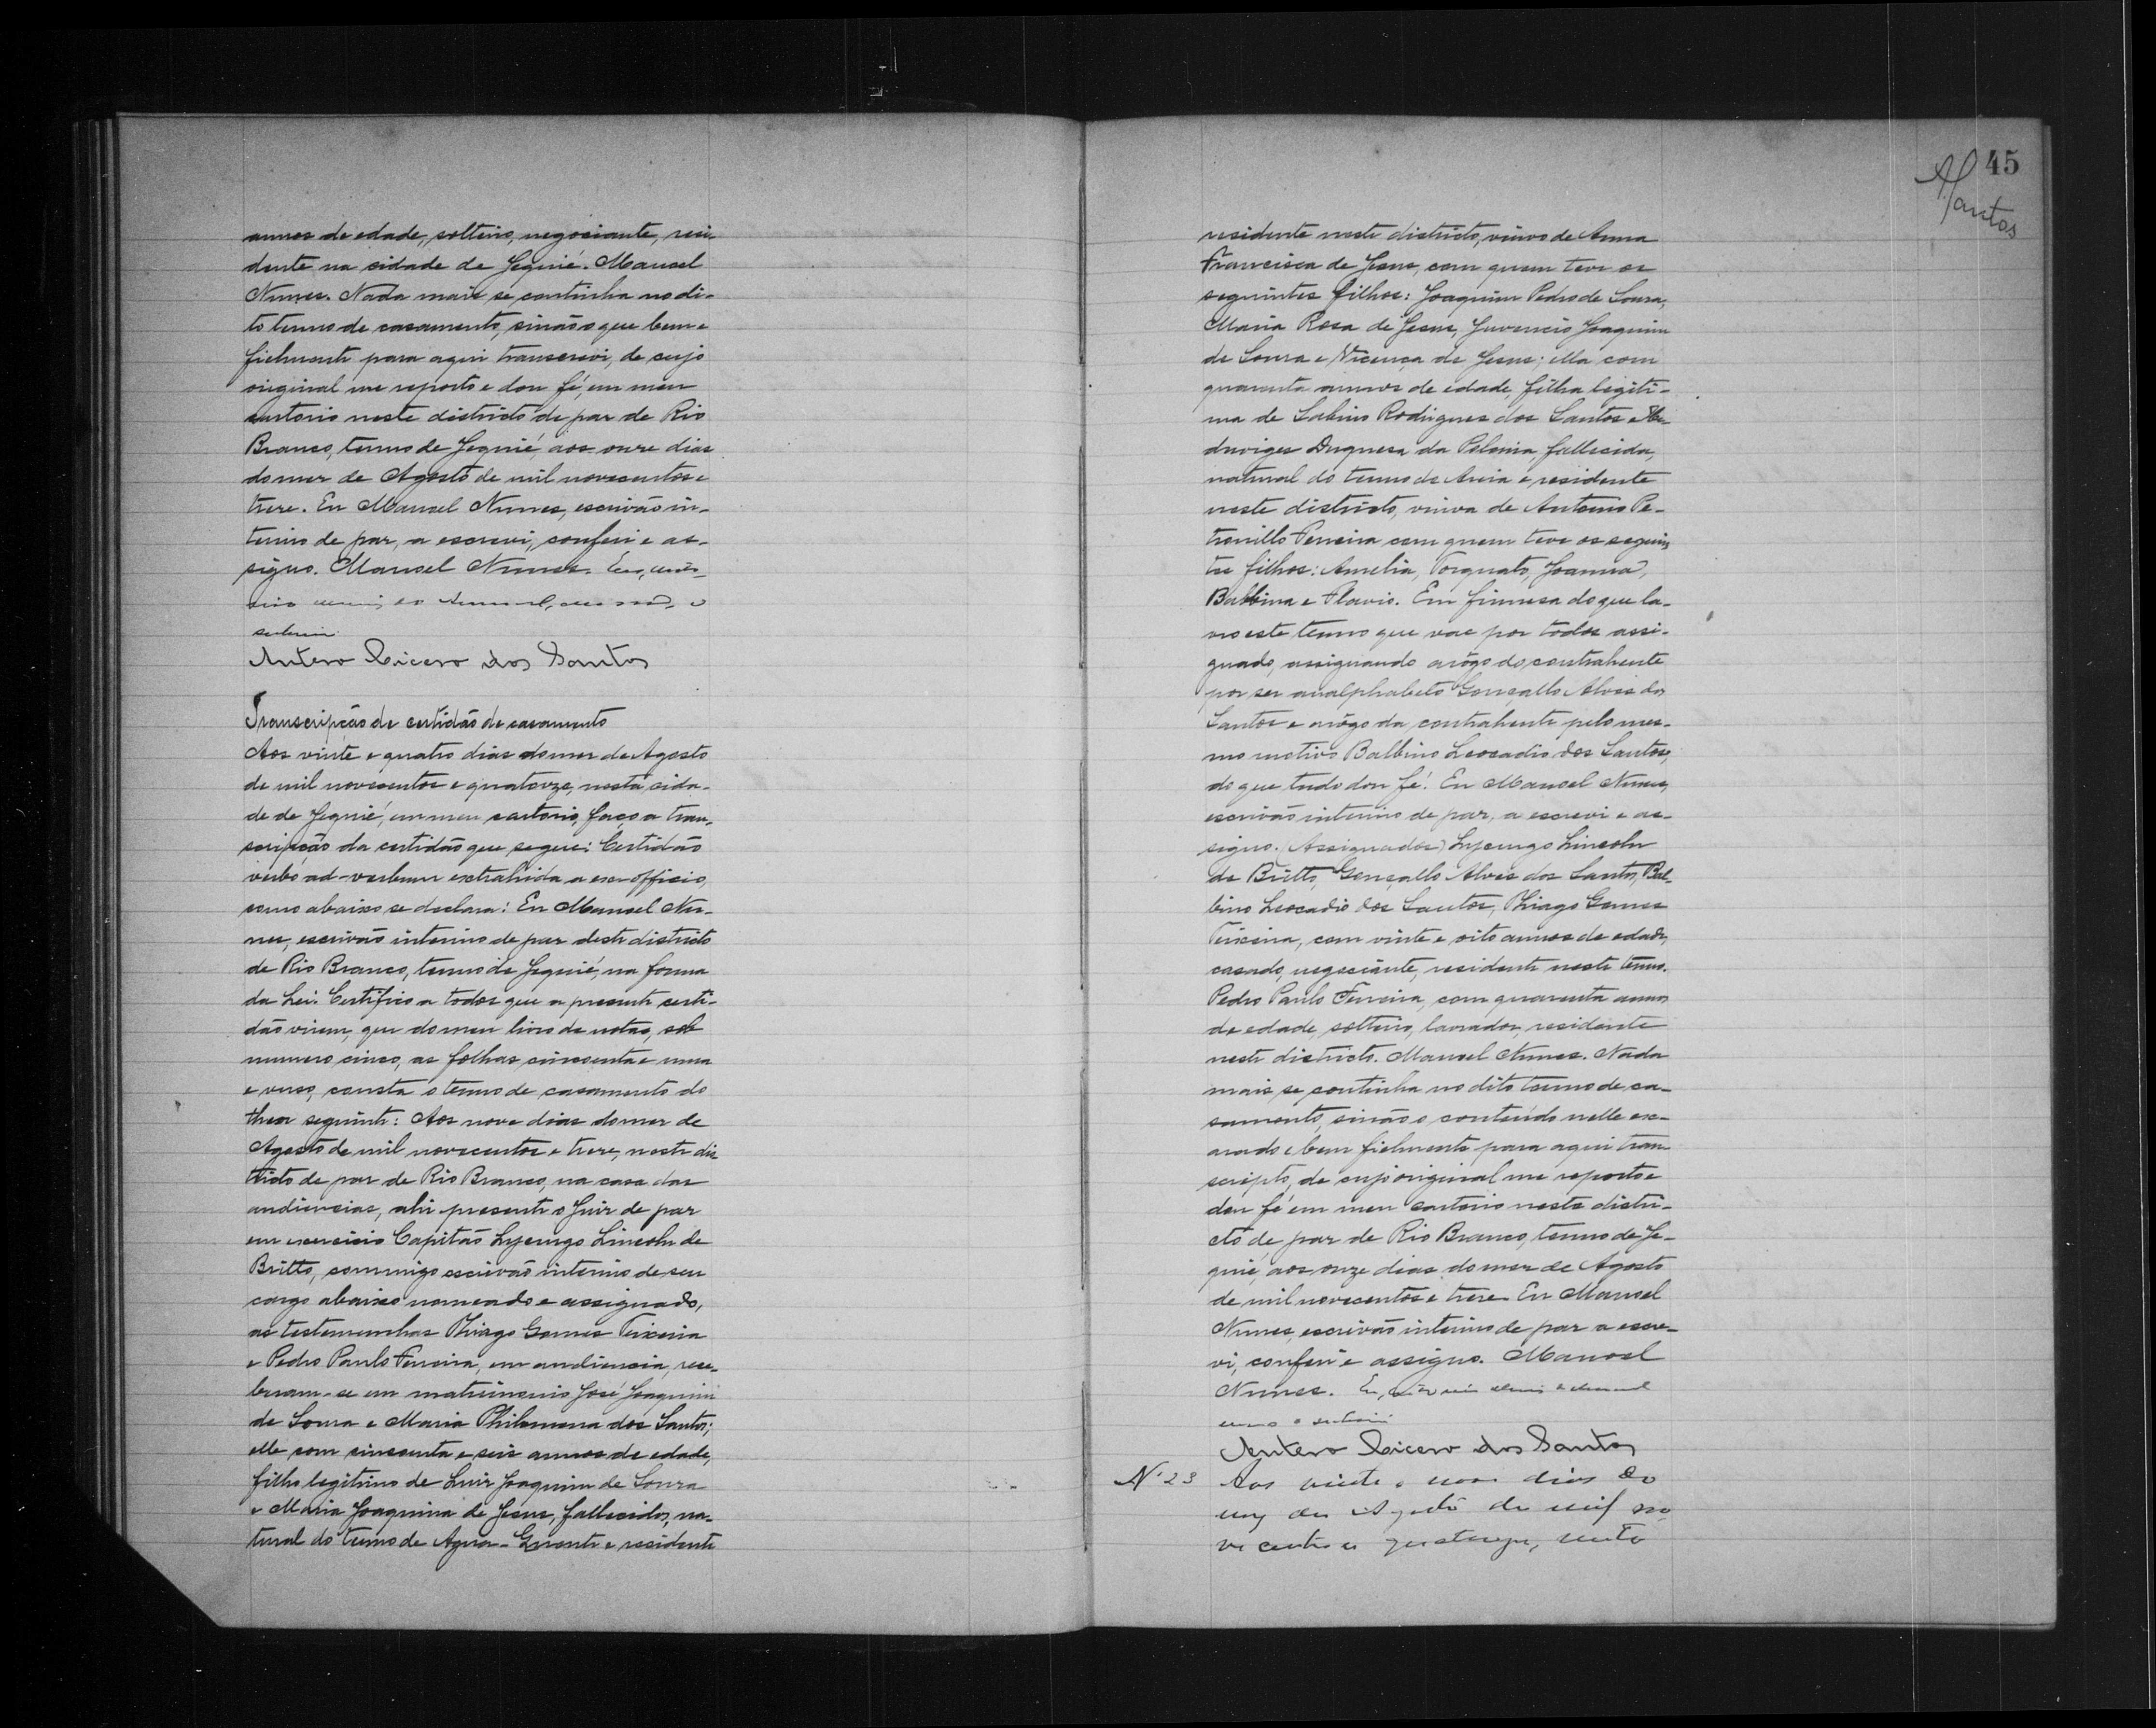 annos de edade, solteiro, negociante, resi-
dente na cidade de Jequié. Manoel
Nunes. Nada mais se continha no di-
to termo de casamento, sinão o que bem e
fielmente para aqui transcrevi, de cujo
original me reporto e dou fé, em meu
cartorio neste districto de paz de Rio
Branco, termo de Jequié aos onze dias
do mez de Agosto de mil novecentos e
treze. Eu Manoel Nunes, escrivão in-
terino de paz, a escrevi, conferi e as-
signo. Manoel Nunes. Eu,
subscrevi
Antero Cicero dos Santos
Transcripção de certidão de casamento
Aos vinte e quatro dias do mez de Agosto
de mil novecentos e quatorze, nesta cida-
de de Jequié, em meu cartorio, faço a tran-
scripção da certidão que segue: Certidão
verbo ad-verbum extrahida a ex-officio,
como abaixo se declara: Eu Manoel Nu-
nes, escrivão interino de paz deste districto
de Rio Branco, termo de Jequié, na forma
da Lei. Certifico a todos que a presente certi-
dão virem, que do meu livro de notas, sob
numero cinco, as folhas cincoenta e uma
e verso, consta o termo de casamento do
theor seguinte: Aos nove dias do mez de
Agosto de mil novecentos e treze, neste dis
tricto de paz de Rio Branco, na casa das
audiencias, ahi presente o Juiz de paz
em exercicio Capitão Lycurgo Lincoln de
Britto, commigo escrivão interino de seu
cargo abaixo nomeado e assignado,
as testemunhas Thiago Gomes Teixeira
e Pedro Paulo Ferreira, em audiencia, rece-
beram-se em matrimonio José Joaquim
de Souza e Maria Philomena dos Santos;
elle com cincoenta e seis annos de edade,
filho legitimo de Luiz Joaquim de Souza
e Maria Joaquina de Jesus, fallecidos, na-
tural do termo de Agua-Quente e residente
45
ASantos
residente neste districto, viuvo de Anna
Francisca de Jesus, com quem teve os
seguintes filhos: Joaquim Pedro de Souza,
Maria Rosa de Jesus, Juvencio Joaquim
de Souza e Vicença de Jesus; ella com
quarenta annos de edade, filha legiti-
ma de Sabino Rodrigues dos Santos e He-
duviges Duquesa da Polonia, fallecida,
natural do termo de Areia e residente
neste districto, viuva de Antonio Pe-
tronillo Ferreira com quem teve os seguin
tes filhos: Amelia, Torquato, Joanna,
Balbina e Flavio. Em firmesa do que la-
vro este termo que vae por todos assi-
gnado, assignando arôgo do contrahente
por ser analphabeto Gonçallo Alves dos
Santos e arôgo da contrahente pelo mes-
mo motivo Balbino Leocadio dos Santos,
do que tudo dou fé. Eu Manoel Nunes,
escrivão interino de paz, a escrevi e as-
signo. (Assignados) Lycurgo Lincoln
de Britto, Gonçallo Alves dos Santos, Bal-
bino Leocadio dos Santos, Thiago Gomes
Teixeira, com vinte e oito annos de edade,
casado, negociante, residente neste termo.
Pedro Paulo Ferreira, com quarenta annos
de edade, solteiro, lavrador, residente
neste districto. Manoel Nunes. Nada
mais se continha no dito termo de ca-
samento, sinão o conteúdo nelle ex-
arado e bem fielmente para aqui tran
scripto, de cujo original me reporto e
dou fé em meu cartorio neste distri-
cto de paz de Rio Branco, termo de Je-
quié, aos onze dias do mez de Agosto
de mil novecentos e treze. Eu Manoel
Nunes, escrivão interino de paz a escre-
vi, conferi e assigno. Manoel
Nunes. Eu,
Antero Cicero dos Santos
Nº 23 Aos vinte e nove dias do
mez de Agosto de mil no
vecentos e quatorze, nesta